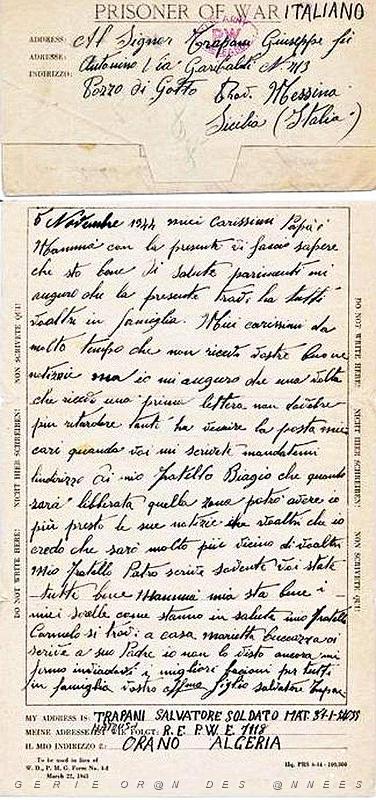 PRISONER OF WAR ITALIANO
ADDRESS: Al Signor Trapani Giuseppe fu
ADRESSE: Antonino Via Garibaldi N° 113
INDIRIZZO: Pozzo di Gotto Prov. Messina
Sicilia (Italia)
P.W.
6 Novembre 1944 miei Carissimi Papà e
Mamma con la presente vi faccio sapere
che sto bene di salute parimenti mi
auguro che la presente trovi ha tutti
voialtri in famiglia. Miei carissimi da
molto tempo che non ricevo vostre buone
notizie ma io mi auguro che una volta
che ricevo una prima lettera non dovrebbe
piu ritardare tanto ha venire la posta miei
cari quando voi mi scrivete mandatemi
lindirizzo di mio fratello Biagio che quando
sara libberata quella zona potrò avere io
più presto le sue notizie che voialtri che io
credo che sarò molto più vicino di voialtri
Mio fratello Patro scrive sovente voi state
tutte bene Mamma mia sta bene i
miei sorelle come stanno in salute mio fratello
Carmelo si trova a casa marietta
scrive a suo Padre io non lo visto ancora mi
firmo inviandovi i migliori bacioni per tutti
in famiglia vostro aff.mo figlio Salvatore
NON SCRIVETE QUI!
NICHT HIER SCHREIBEN!
DO NOT WRITE HERE!
DO NOT WRITE HERE!
NICHT HIER SCHREIBEN!
NON SCRIVETE QUI!
MY ADDRESS IS: TRAPANI SALVATORE SOLDATO MAT.
MEINE ADRESSE IST WIE FOLGT: R.E. P.W.E. 1118
IL MIO INDIRIZZO È: ORANO ALGERIA
To be used in lieu of
W. D., P. M. G. Form No. 4-I
March 22, 1943
Hq. PBS 6-44
GERIE OR@N DES @NNEES